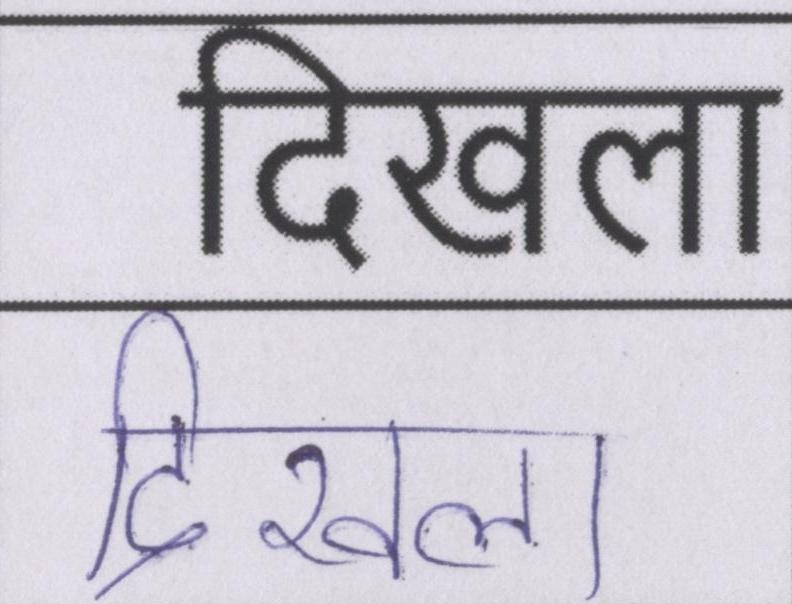 दिखला
दिखला